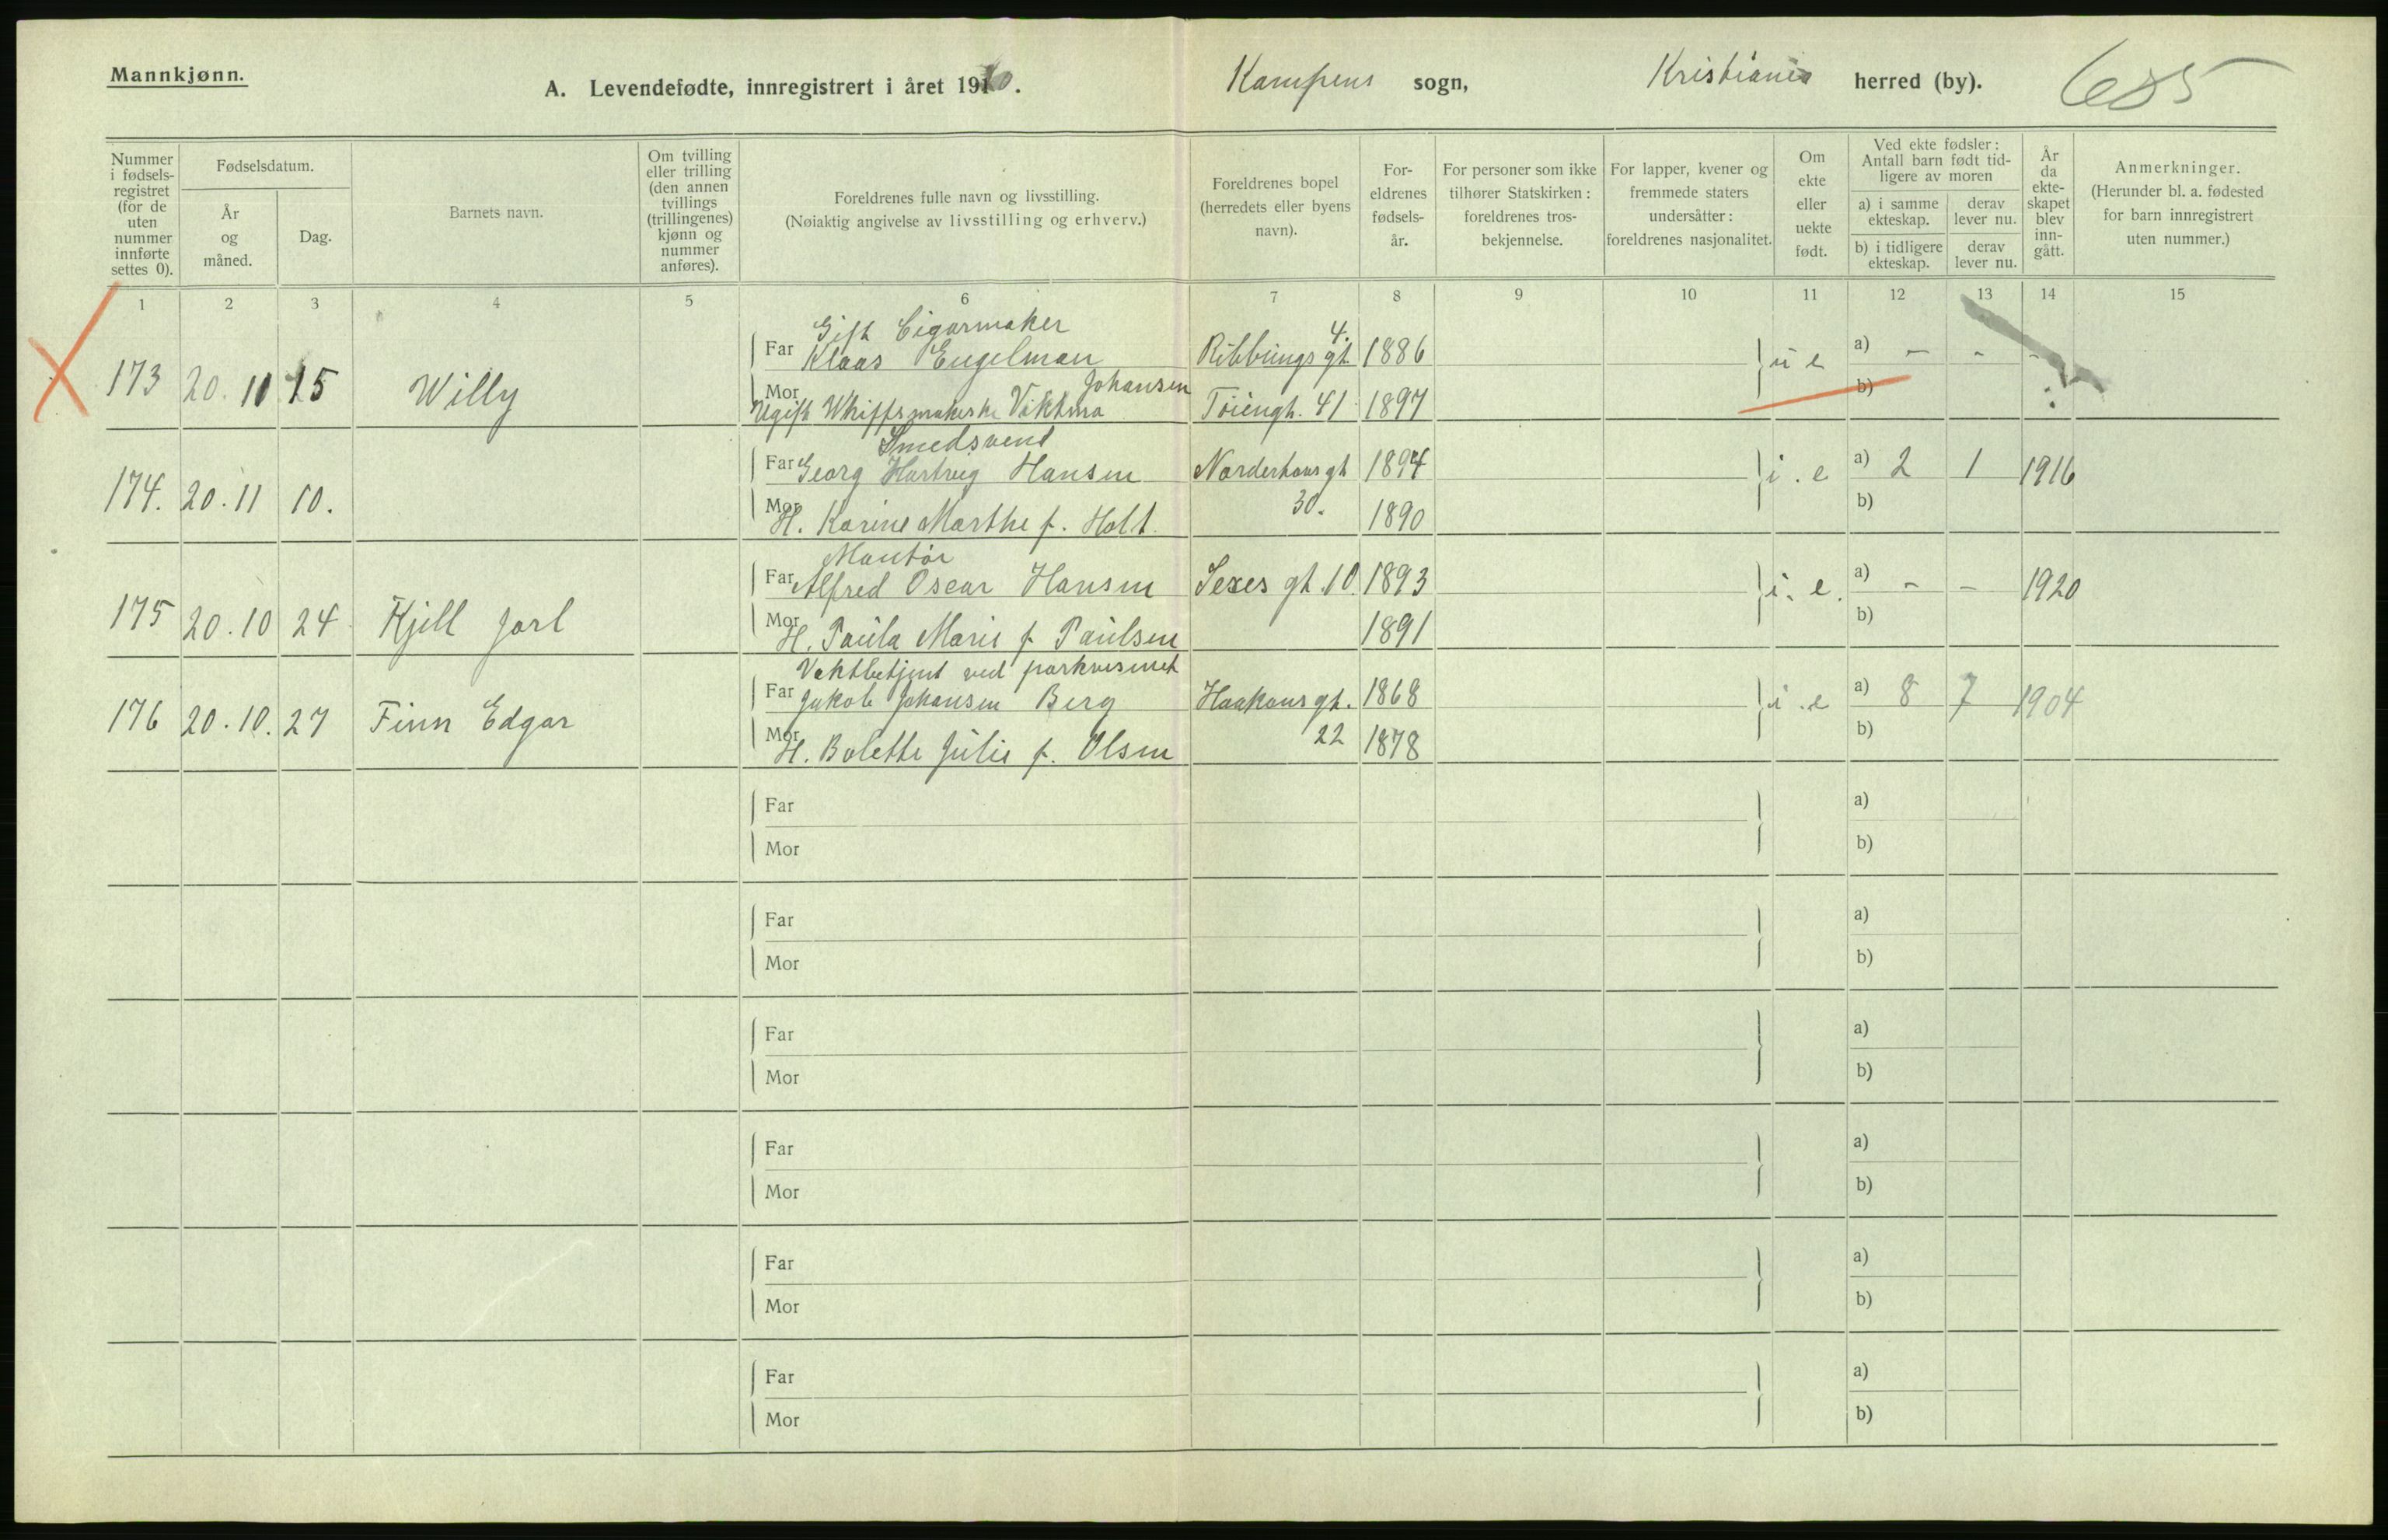 Mannkjønn.
A. Levendefødte, innregistrert i året 1920.
Kampens sogn, Kristiania herred (by).
685
Nummer i fødselsregistret (for de uten nummer innførte settes 0).
Fødselsdatum.
År og måned.
Dag.
Barnets navn.
Om tvilling eller trilling (den annen tvillings (trillingenes) kjønn og nummer anføres).
Foreldrenes fulle navn og livsstilling.
(Nøiaktig angivelse av livsstilling og erhverv.)
Foreldrenes bopel (herredets eller byens navn).
Foreldrenes fødselsår.
For personer som ikke tilhører Statskirken: foreldrenes trosbekjennelse.
For lapper, kvener og fremmede staters undersåtter: foreldrenes nasjonalitet.
Om ekte eller uekte født.
Ved ekte fødsler: Antall barn født tidligere av moren
a) i samme ekteskap.
derav lever nu.
b) i tidligere ekteskap.
derav lever nu.
År da ekteskapet blev inngått.
Anmerkninger.
(Herunder bl. a. fødested for barn innregistrert uten nummer.)
1 2 3 4 5 6 7 8 9 10 11 12 13 14 15
Gift Cigarmaker
173 20.11 15 Willy Far Klaas Engelman Ribbungs gt. 4. 1886 u e a) - - -
Mor Ugift Whiffsmakerske Viktoria Johansen Tøiengt. 41 1897 b)
Smedsvend
174. 20.11 10. Far Georg Hartvig Hansen Norderhovs gt 1894 i. e a) 2 1 1916
Mor H. Karine Marthe f. Holt. 30. 1890 b)
Montør
175 20.10 24 Kjell Jarl Far Alfred Oscar Hansen Sexes gt. 10. 1893 i. e. a) - - 1920
Mor H. Paula Marie f. Paulsen 1891 b)
Vaktbetjent ved parkvesenet
176 20.10. 27 Finn Edgar Far Jakob Johansen Berg Haakons gt. 1868 i. e a) 8 7 1904
Mor H. Bolette Julie f. Olsen 22 1878 b)
Far a)
Mor b)
Far a)
Mor b)
Far a)
Mor b)
Far a)
Mor b)
Far a)
Mor b)
Far a)
Mor b)